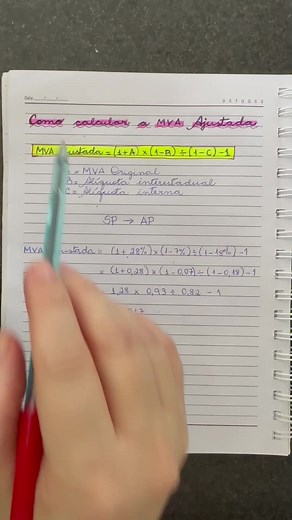 Como calcular a MVA Ajustada
MVA Ajustada = (1+A) × (1-B) ÷ (1-C) -1
= MVA Original
B = Alíquota interestadual
C = Alíquota interna
SP → AP
MVA Ajustada = (1+28%) × (1-7%) ÷ (1-18%) -1
= (1+0,28) × (1-0,07) ÷ (1-0,18) -1
1,28 × 0,93 ÷ 0,82 - 1